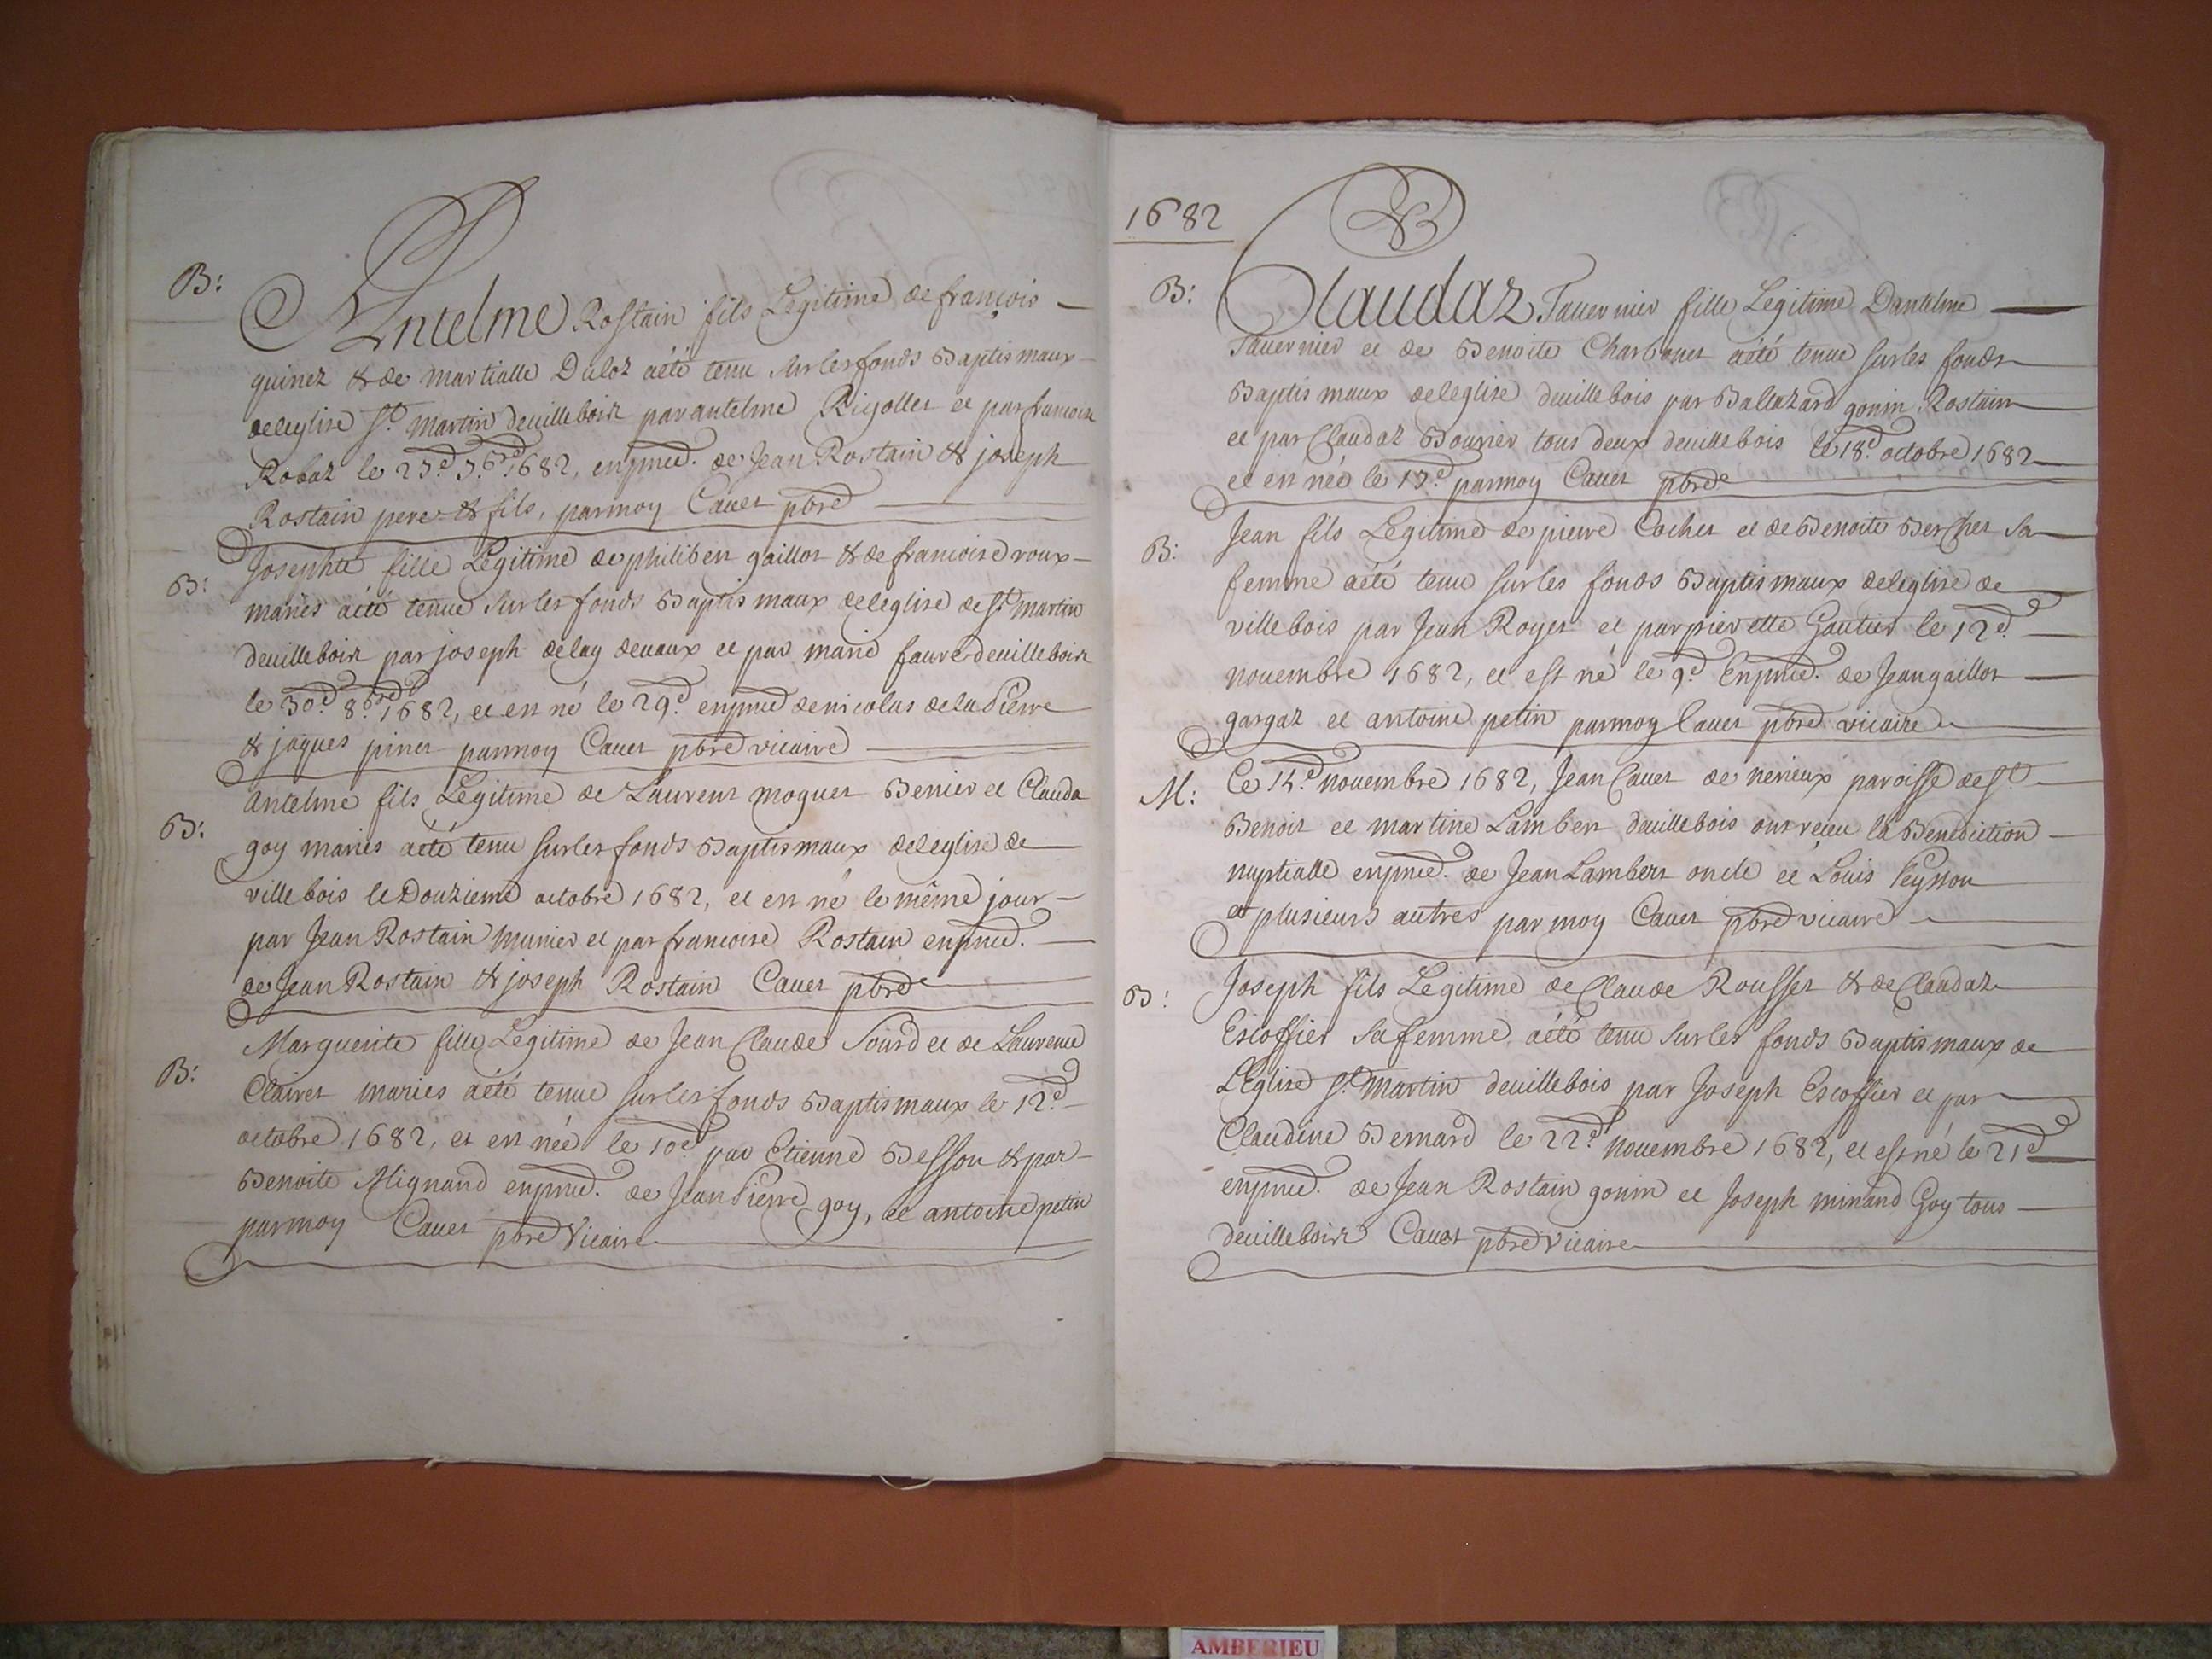 B: Antelme Rostain fils Legitime de francois
quinez & de martialle Duloz aété tenu sur les fonds Baptismaux
deleglise St. martin deuillebois par antelme Rigollet et par francoise
Robaz le 27.e 7.bre 1682, enpnce. de Jean Rostain & joseph
Rostain pere & fils, parmoy Cauet pbre
B: Josephte fille Legitime de philibert gaillot & de francoise roux
mariés aété tenue sur les fonds Baptismaux deleglise de St. martin
deuillebois par joseph delay deuaux et par marie faure deuillebois
le 30.e 8.bre 1682, et est né le 29.e enpnce de nicolas de la Pierre
& jaques piner parmoy Cauet pbre vicaire
B: antelme fils Legitime de Laurent moguet Benier et Clauda
goy mariés aété tenu sur les fonds Baptismaux deleglise de
villebois le Douzieme octobre 1682, et est né le même jour
par Jean Rostain munier et par francoise Rostain enpnce.
de Jean Rostain & joseph Rostain Cauet pbre
B: Marguerite fille Legitime de Jean Claude Sourd et de Laurence
Clairet mariés aété tenue sur les fonds Baptismaux le 12.e
octobre 1682, et est née le 10e par Etienne Besson & par
Benoite Mignand enpnce. de Jean Pierre goy, et antoine petin
parmoy Cauet pbre Vicaire
1682
B: Claudaz Tauernier fille Legitime Dantelme
Tauernier et de Benoite Charbonet aété tenue sur les fonds
Baptismaux deleglise deuillebois par Baltazard gonin Rostain
et par Claudaz Bourier tous deux deuillebois le 18.e octobre 1682
et est née le 17.e parmoy Cauet pbre
B: Jean fils Legitime de pierre Cochet et de Benoite Berchet sa
femme aété tenu sur les fonds Baptismaux deleglise de
villebois par Jean Royet et par pierrette Gautier le 12.e
nouembre 1682, et est né le 9.e Enpnce. de Jean gaillot
gargaz et antoine petin parmoy Cauet pbre vicaire
M: Le 15.e nouembre 1682, Jean Cauet de nerieux paroisse de St.
Benoit et martine Lambert deuillebois ont receu la Benediction
nuptialle enpnce. de Jean Lambert oncle et Louis Peysson
et plusieurs autres par moy Cauet pbre vicaire
B: Joseph fils Legitime de Claude Rousset & de Claudaz
Escoffier sa femme aété tenu sur les fonds Baptismaux de
LEglise St. Martin deuillebois par Joseph Escoffier et par
Claudine Bernard le 22.e nouembre 1682, et est né le 21e
enpnce. de Jean Rostain gonin et Joseph minand Goy tous
deuillebois Cauet pbre Vicaire
AMBERIEU